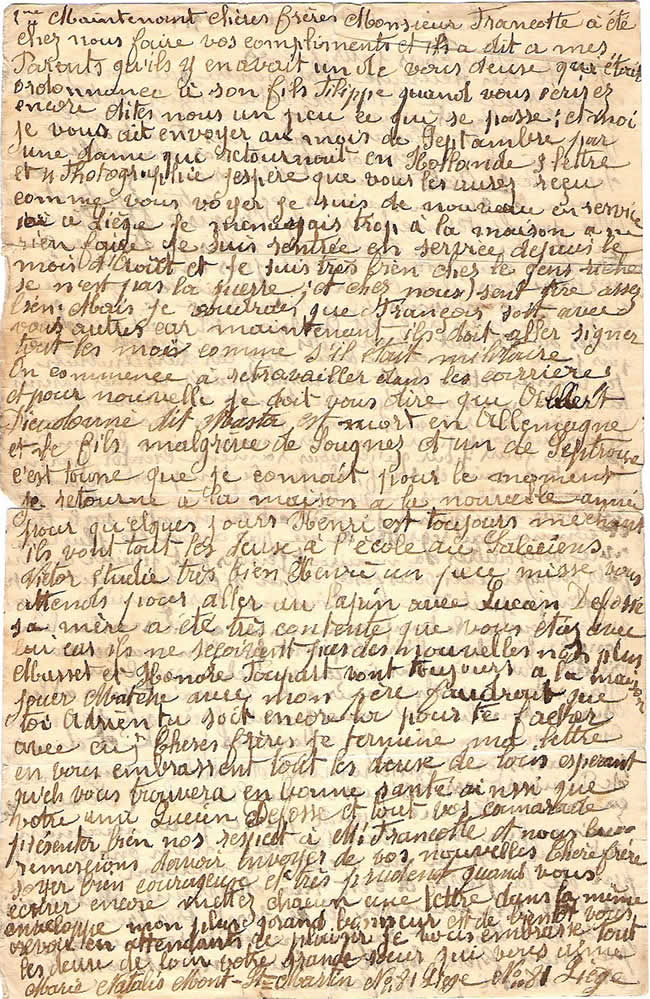 Maintenant chères frères Monsieur Francotte a été
chez nous faire vos compliments et ils a dit a mes
Parents qu'ils y en avait un de vous deuse qui étais
ordonnance à son fils Filippe quand vous ecrisez
encore dites nous un peu ce que se passe; et moi
je vous ait envoyer au mois de Septambre par
une dame qui retournait en Hollande 1 lettre
et 11 Photographie j'espère que vous les aurez reçu
comme vous voyer je suis de nouveau en service
a Liège je trop à la maison a ne
rien faire je suis rentrée en service depuis le
mois d'Août et je suis très bien chez le gens riche
se n'est pas la guerre, et chez nous) sont tire assez
bien: Mais je voudrais que François soit avec
vous autres car maintenent ils doit aller signer
tout les mois comme s'il était militaire
On commence à retravailler dans les carrière;
et pour nouvelle je doit vous dire que Albert
Dieudonné dit Masta est mort en Allemagne
et le fils malgreve de Sougnez et un de Septroux
c'est toune que je connait pour le moment
je retourne à la maison a la nouvelle année
pour quelques jours Henri est toujours méchant
ils vont tout les deuse à l'école au Saleciens
Victor étudie très bien Henri un puce misse vous
attends pour aller au lapin avec Lucien Defosse
sa mère a été très contente que vous étas avec
lui car ils ne reçoivent pas des nouvelles non plus
Musset et Honoré Toupart vont toujours à la maison
jouer Matche avec mon père faudrait que
toi Adrien tu soit encore la pour te facher
avec eu, Cheres frères je termine ma lettre
en vous embrassent tout les deuse de loins esperant
qu'elle vous trouvera en bonne santé ainsi que
votre ami Lucien Defosse et tout vos camarade
présenter bien nos respect à M. Francotte et nous le
remercions d'avoir envoyer de vos nouvelles Chere frère
soyer bien courageuse et très prudent quand vous
écrirer encore mettez chacun une lettre dans la même
enveloppe mon plus grand bonneur est de bientôt vous
revoir en attendants ce plaisir je vous embrasse tout
les deuse de loin votre grande sœur qui vous aime
Marie Natalis Mont-St-Martin No 81 Liège No 81 Liège